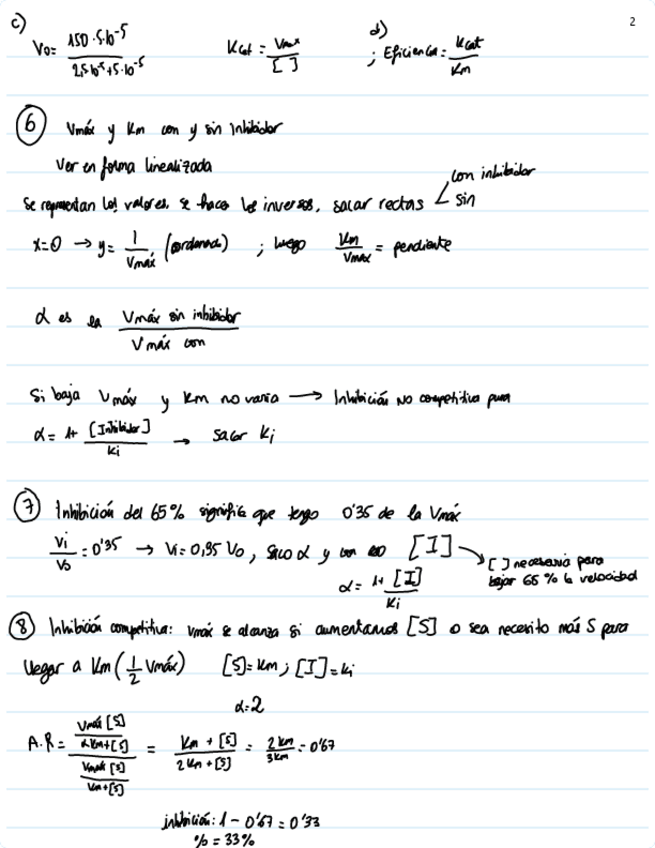 2
c) Vo = 150·5·10^-5 / 2,5·10^-5 + 5·10^-5    Kcat = Vmax / [ ]    d) ; Eficiencia = Kcat / Km
6 Vmáx y Km con y sin Inhibidor
Ver en forma linealizada
Se representan los valores, se hacen los inversos, sacar rectas < con inhibidor / sin
x=0 → y = 1 / Vmáx (ordenada) ; luego Km / Vmax = pendiente
α es la Vmáx sin inhibidor / Vmáx con
Si baja Vmáx y Km no varia → Inhibición No competitiva pura
α = 1+ [Inhibidor] / Ki → sacar Ki
7 Inhibición del 65% significa que tengo 0'35 de la Vmáx
Vi / Vo = 0'35 → Vi = 0,35 Vo, saco α y con eso [I] → [ ] necesaria para bajar 65% la velocidad
α = 1+ [I] / Ki
8 Inhibición competitiva: Vmáx se alcanza si aumentamos [S] o sea necesito más S para
llegar a Km (1/2 Vmáx)    [S] = Km ; [I] = Ki
α=2
A.R = (Vmáx [S] / αKm+[S]) / (Vmáx [S] / Km+[S]) = Km + [S] / 2Km + [S] = 2Km / 3Km = 0'67
inhibición: 1 - 0'67 = 0'33
% = 33%